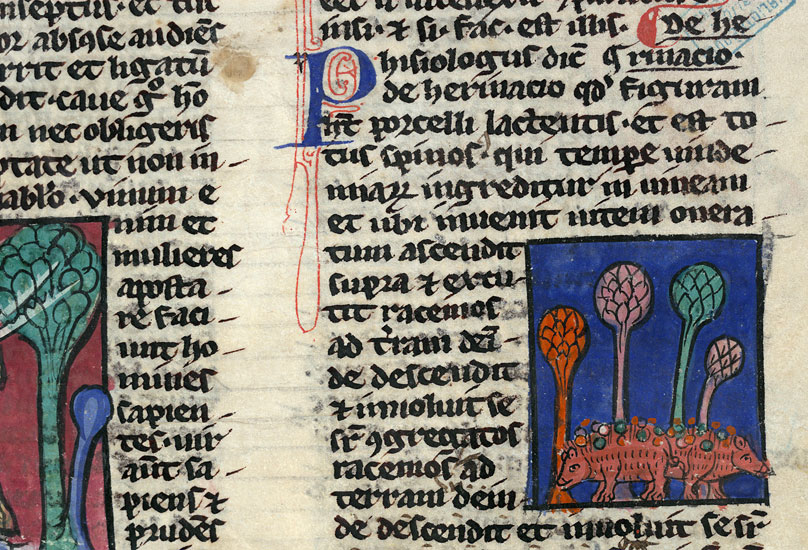 nseptus · et tūr
or absq̄e audiēs
rrit et ligatū
dit · caue gͦ ho
n nec obligeris
ptate ut non in-
iablo · Vinum e
nim et
mulieres
aposta-
re faci-
unt ho-
mines
sapien-
tes · uir
aūt sa-
piens ⁊
prudēs
insi · ⁊ si · fac · est illis · De he
Phisiologus diċ ꝯrinacio ·
de herinacio qď figuram
hēt porcelli lactentis · et est to-
tus spinos · qui tempe uinde-
miaꝝ ingreditur in uineam
et ubi inuenit uitem onera-
tum ascendit
supra ⁊ excu-
tit racemos
ad t̄ram deī-
de descendit
⁊ inuoluit se
sr̄ ꝯgregatos
racemos ad
terram dein-
de descendit et inuoluit se sr̄